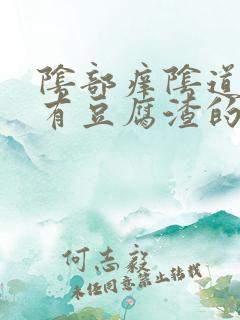 陰部痒陰道
有豆腐渣的
何志毅
未经同意禁止转载